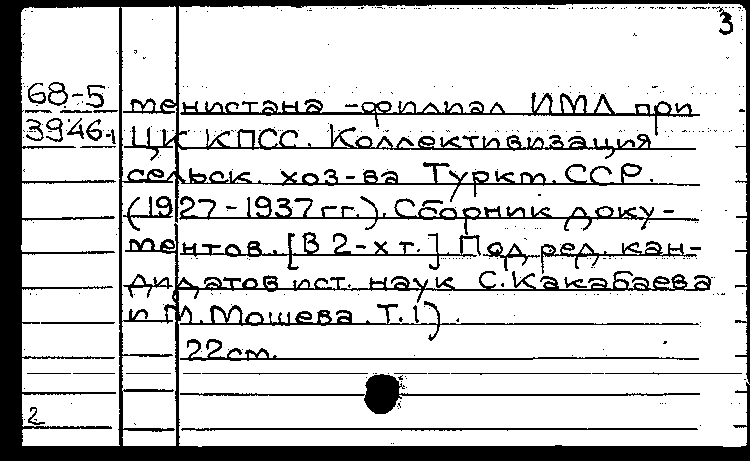 3
68-5 тенистана -филиал ИМЛ при
3946-1 ЦК КПСС. Коллективизация
сельск. хоз-ва Туркм. ССР.
(1927-1937 гг.). Сборник доку-
ментов. [В 2-х т.] Под ред. кан-
дидатов ист. наук С. Какабаева
и М. Мошева. Т. 1).
22 см.
2